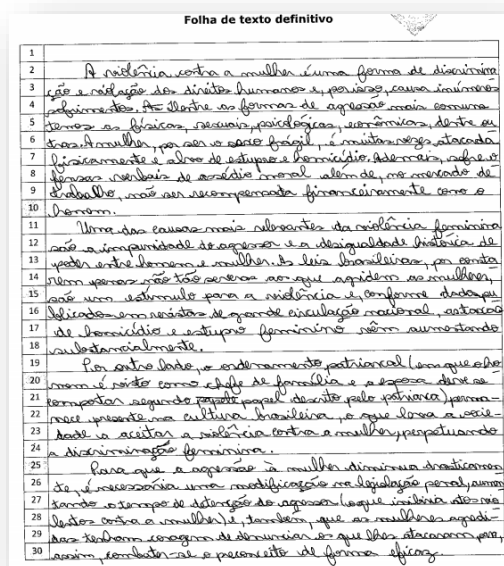 Folha de texto definitivo
1
2 A violência contra a mulher é uma forma de discrimina
3 ção e violação dos direitos humanos e, por isso, causa inúmeros
4 sofrimentos. As Dentre as formas de agressão mais comuns
5 temos as físicas, sexuais, psicológicas, econômicas, dentre ou
6 tras. A mulher, por ser o sexo frágil, é muitas vezes atacada
7 fisicamente e alvo de estupro e homicídio. Ademais, sofre o
8 fensas verbais de assédio moral alem de, no mercado de
9 trabalho, não ser recompensada financeiramente como o
10 homem.
11 Uma das causas mais relevantes da violência feminina
12 são a impunidade do agressor e a desigualdade histórica de
13 poder entre homem e mulher. As leis brasileiras, por consta
14 rem penas não tão severas aos que agridem as mulheres,
15 são um estímulo para a violência e, conforme dados pu
16 blicados em revistas de grande circulação nacional, os tacos
17 de homicídio e estupro feminino vêm aumentando
18 substancialmente.
19 Por outro lado, o ordenamento patriarcal (em que o ho
20 mem é visto como chefe de família e a esposa deve se
21 comportar segundo papel descrito pelo patriarca) perma-
22 nece presente na cultura brasileira, o que leva a socie
23 dade a aceitar a violência contra a mulher, perpetuando
24 a discriminação feminina.
25 Para que a agressão à mulher diminua drasticamen
26 te, é necessária uma modificação na legislação penal, aumen
27 tando o tempo de detenção do agressor (o que inibiria atos vio
28 lentos contra a mulher) e, também, que as mulheres agredi-
29 das tenham coragem de denunciar os que lhes atacaram para,
30 assim, combater-se o preconceito de forma eficaz.